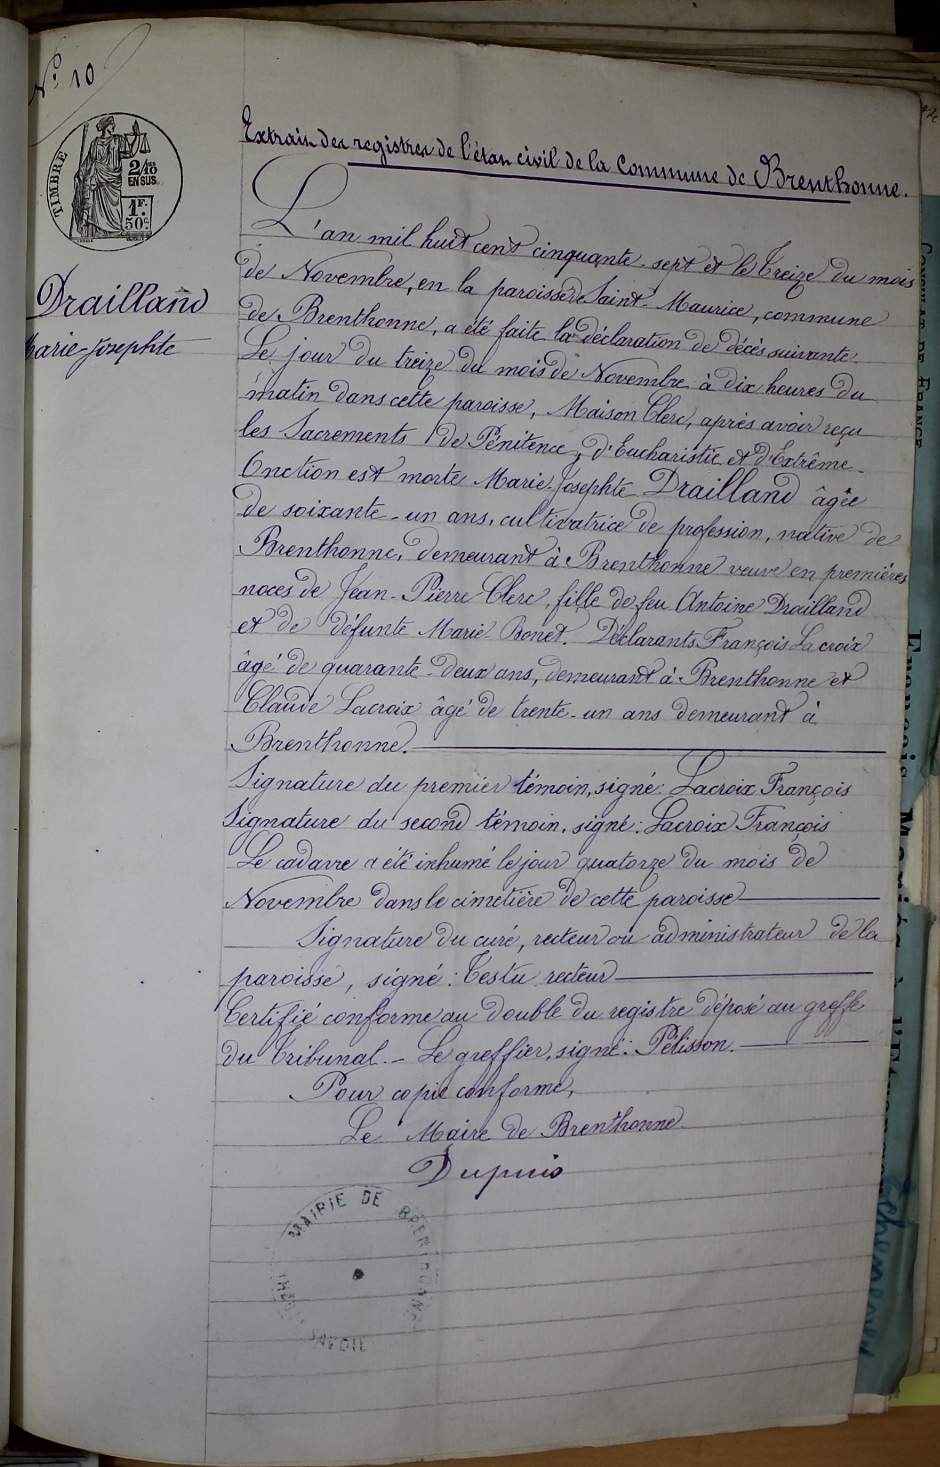 N° 10
TIMBRE
2/10 EN SUS
1F. 50c.
Drailland
Marie-Josephte
Extrait des registres de l'état civil de la Commune de Brenthonne.
L'an mil huit cent cinquante-sept et le treize du mois
de Novembre, en la paroisse de Saint-Maurice, commune
de Brenthonne, a été faite la déclaration de décès suivante.
Le jour du treize du mois de Novembre à dix heures du
matin dans cette paroisse, Maison Clerc, après avoir reçu
les Sacrements de Pénitence, d'Eucharistie et d'Extrême-
Onction est morte Marie-Josephte Drailland âgée
de soixante-un ans, cultivatrice de profession, native de
Brenthonne, demeurant à Brenthonne veuve en premières
noces de Jean-Pierre Clerc, fille de feu Antoine Drailland
et de défunte Marie Bonet. Déclarants François Lacroix
âgé de quarante-deux ans, demeurant à Brenthonne et
Claude Lacroix âgé de trente-un ans demeurant à
Brenthonne.
Signature du premier témoin, signé: Lacroix François
Signature du second témoin, signé: Lacroix François
Le cadavre a été inhumé le jour quatorze du mois de
Novembre dans le cimetière de cette paroisse
Signature du curé, recteur ou administrateur de la
paroisse, signé: Testu recteur
Certifié conforme au double du registre déposé au greffe
du Tribunal. - Le greffier, signé: Pélisson.
Pour copie conforme,
Le Maire de Brenthonne
Dupuis
MAIRIE DE BRENTHONNE
SAVOIE
CONSULAT DE FRANCE